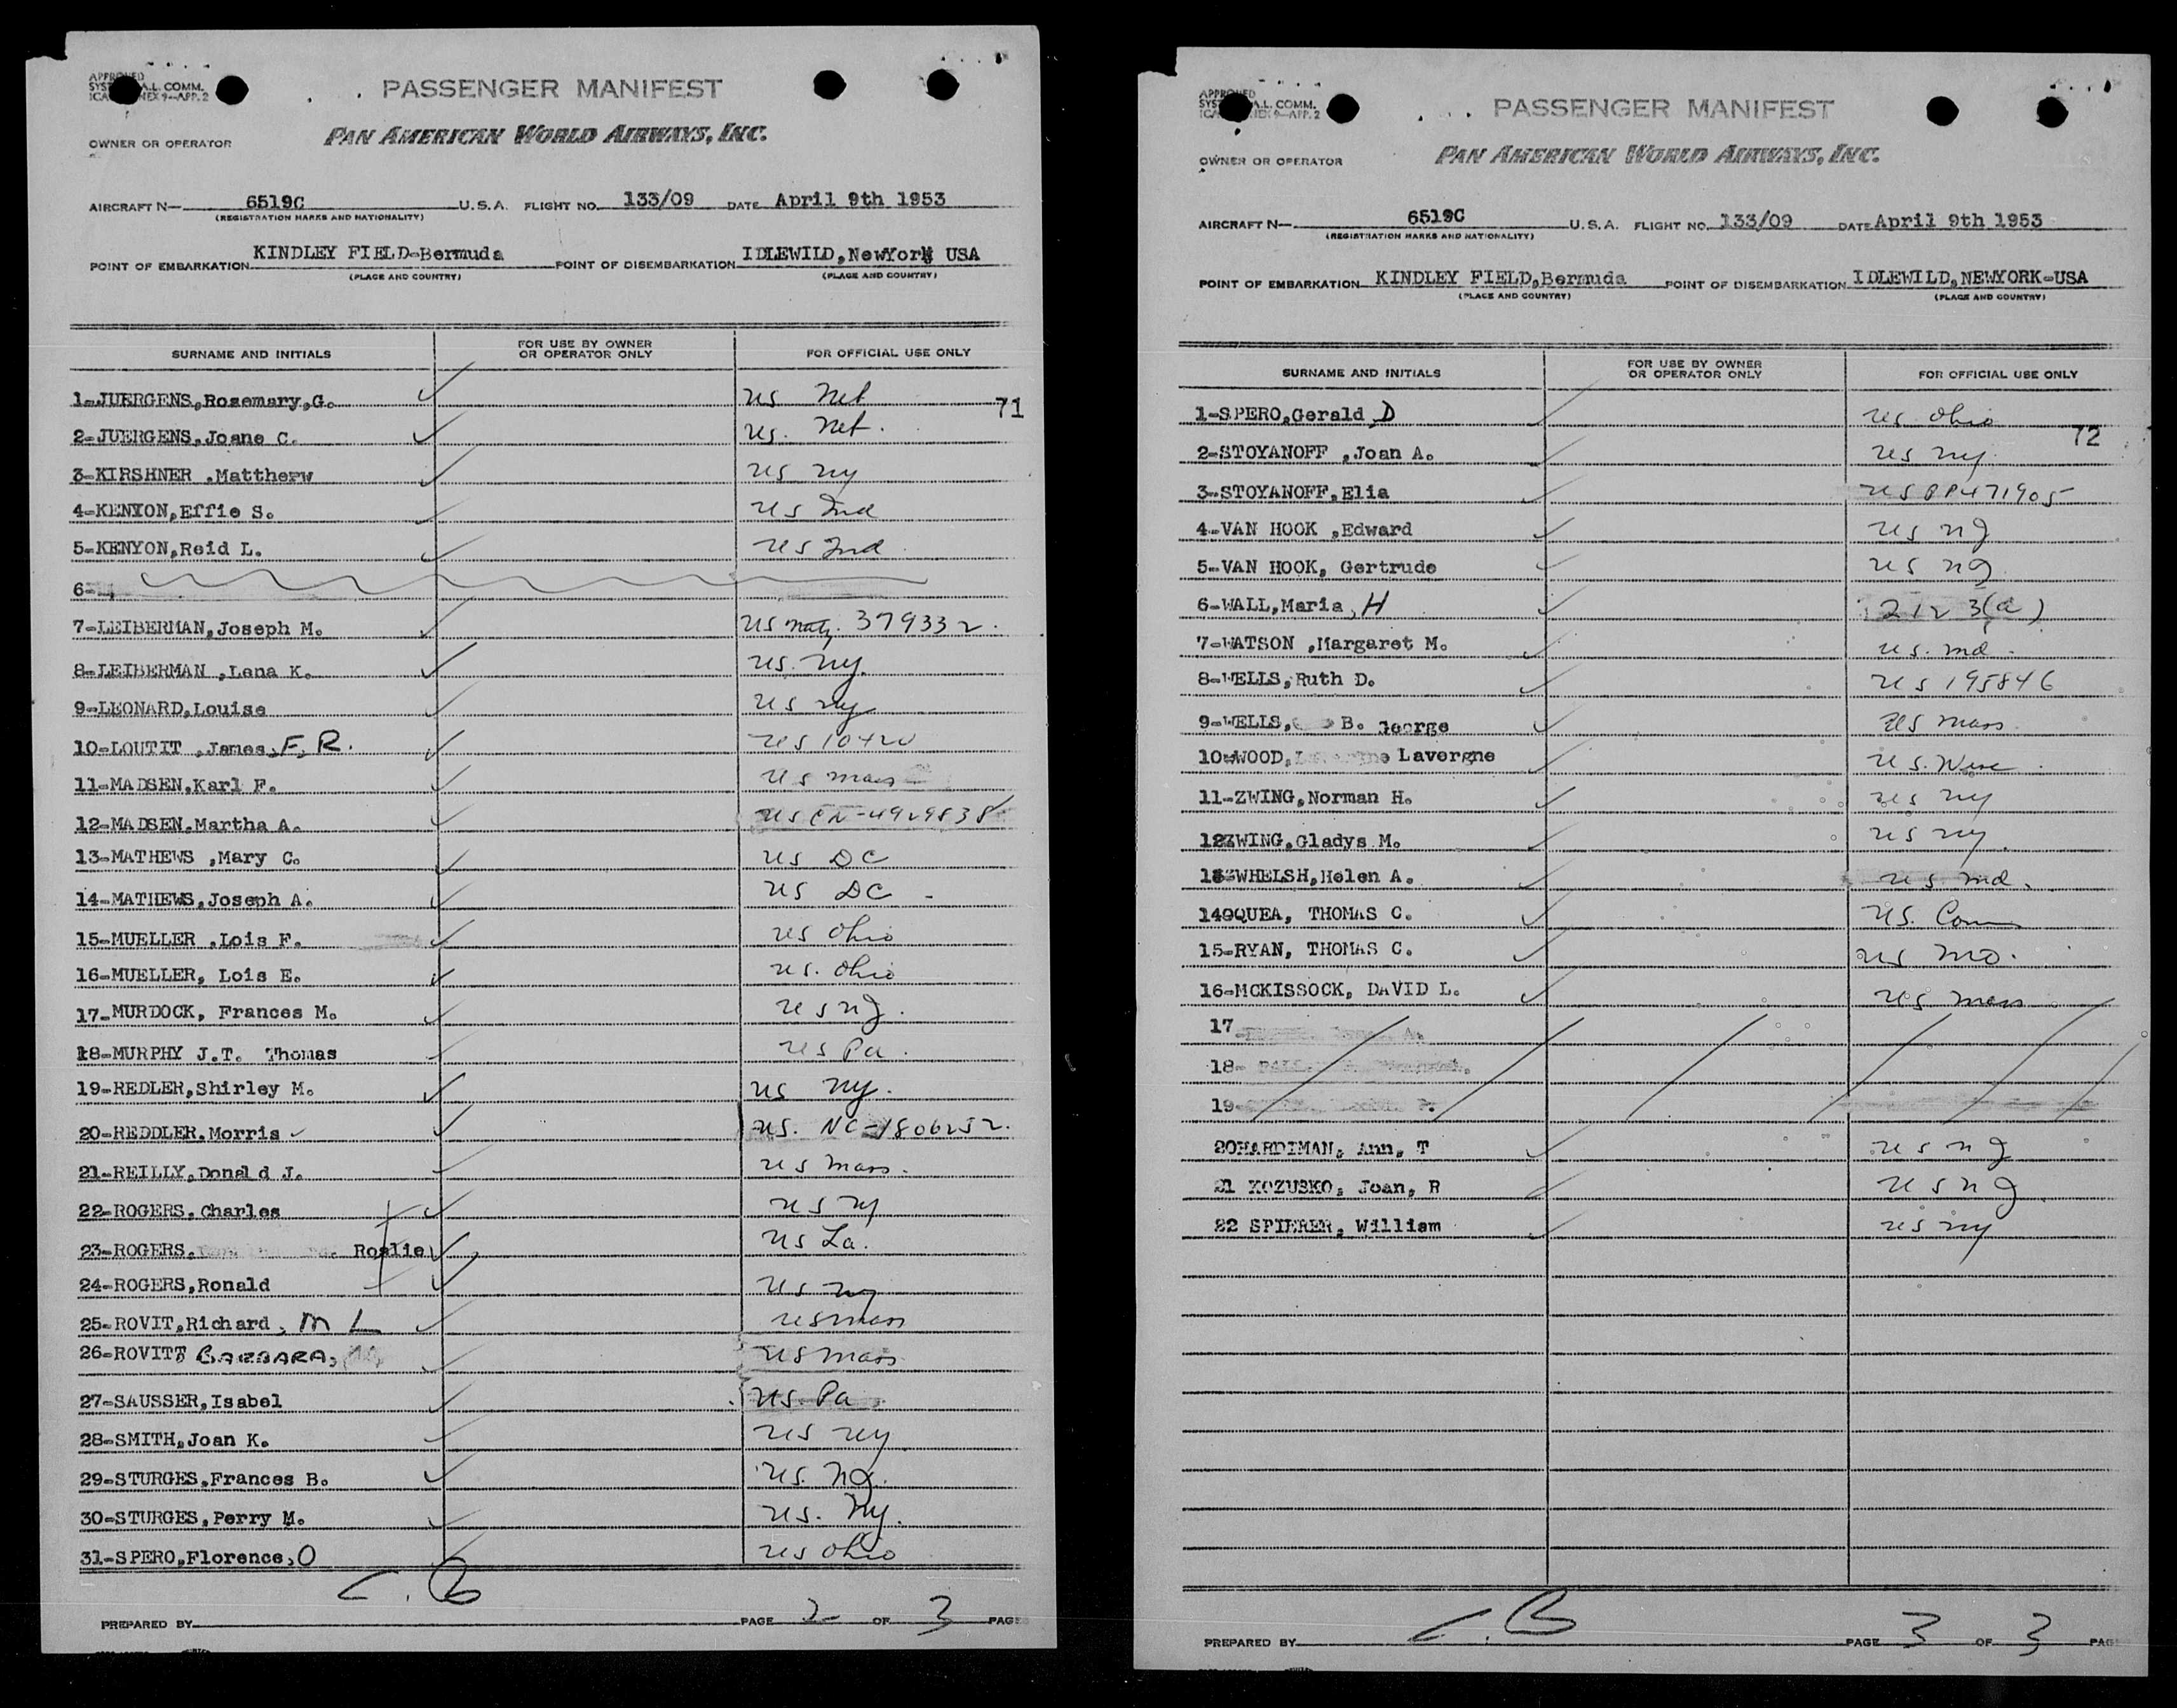 APPROVED
SYST A.L. COMM.
ICA NEX 9-APP. 2
PASSENGER MANIFEST
OWNER OR OPERATOR PAN AMERICAN WORLD AIRWAYS, INC.
AIRCRAFT N- 6519C U.S.A. FLIGHT NO. 133/09 DATE April 9th 1953
(REGISTRATION MARKS AND NATIONALITY)
POINT OF EMBARKATION KINDLEY FIELD-Bermuda POINT OF DISEMBARKATION IDLEWILD,NewYork USA
(PLACE AND COUNTRY) (PLACE AND COUNTRY)
SURNAME AND INITIALS FOR USE BY OWNER OR OPERATOR ONLY FOR OFFICIAL USE ONLY
1-JUERGENS,Rosemary,G. us Net
71
2-JUERGENS,Joane C. us. Net.
3-KIRSHNER ,Mattherw us ny
4-KENYON,Effie S. us Ind
5-KENYON,Reid L. us Ind
6-
7-LEIBERMAN,Joseph M. us natz. 379332.
8-LEIBERMAN ,Lena K. us. ny.
9-LEONARD,Louise us ny
10-LOUTIT ,James,F,R. us 10420
11-MADSEN,Karl F. us mass
12-MADSEN.Martha A. us CN-4929838
13-MATHEWS ,Mary C. us DC
14-MATHEWS,Joseph A. us DC -
15-MUELLER ,Lois F. us Ohio
16-MUELLER, Lois E. us. Ohio
17-MURDOCK, Frances M. us nJ.
18-MURPHY J.T. Thomas us Pa.
19-REDLER,Shirley M. us ny.
20-REDDLER.Morris us. NC-1806252.
21-REILLY,Donald J. us mass.
22-ROGERS,Charles us ny
23-ROGERS, Roslie us La.
24-ROGERS,Ronald us ny
25-ROVIT,Richard, M L us mass
26-ROVITT BARBARA, us mass
27-SAUSSER,Isabel us. Pa.
28-SMITH,Joan K. us ny
29-STURGES,Frances B. us. NJ.
30-STURGES,Perry M. us. Ny.
31-SPERO,Florence,O us Ohio
PREPARED BY C.B PAGE 2 OF 3 PAGES
APPROVED
SYST A.L. COMM.
ICA NEX 9-APP. 2
PASSENGER MANIFEST
OWNER OR OPERATOR PAN AMERICAN WORLD AIRWAYS, INC.
AIRCRAFT N- 6519C U.S.A. FLIGHT NO. 133/09 DATE April 9th 1953
(REGISTRATION MARKS AND NATIONALITY)
POINT OF EMBARKATION KINDLEY FIELD,Bermuda POINT OF DISEMBARKATION IDLEWILD,NEWYORK-USA
(PLACE AND COUNTRY) (PLACE AND COUNTRY)
SURNAME AND INITIALS FOR USE BY OWNER OR OPERATOR ONLY FOR OFFICIAL USE ONLY
1-SPERO,Gerald,D us. Ohio
72
2-STOYANOFF ,Joan A. us ny.
3-STOYANOFF,Elia us PP471905
4-VAN HOOK ,Edward us nJ
5-VAN HOOK, Gertrude us nJ.
6-WALL,Maria,H 212 3(a)
7-WATSON ,Margaret M. us. md.
8-WELLS,Ruth D. us 195846
9-WELLS, B. George us mass.
10-WOOD, Lavergne us. Wisc.
11-ZWING,Norman H. us ny
12ZWING,Gladys M. us ny.
13-WHELSH,Helen A. us md.
14-OQUEA, THOMAS C. us. Conn
15-RYAN, THOMAS C. us MO.
16-MCKISSOCK, DAVID L. us mass
17
18-
19-
20HARDIMAN, Ann, T us nJ
21 KOZUSKO, Joan, R us nJ.
22 SPIERER, William us ny
PREPARED BY C.B PAGE 3 OF 3 PAG